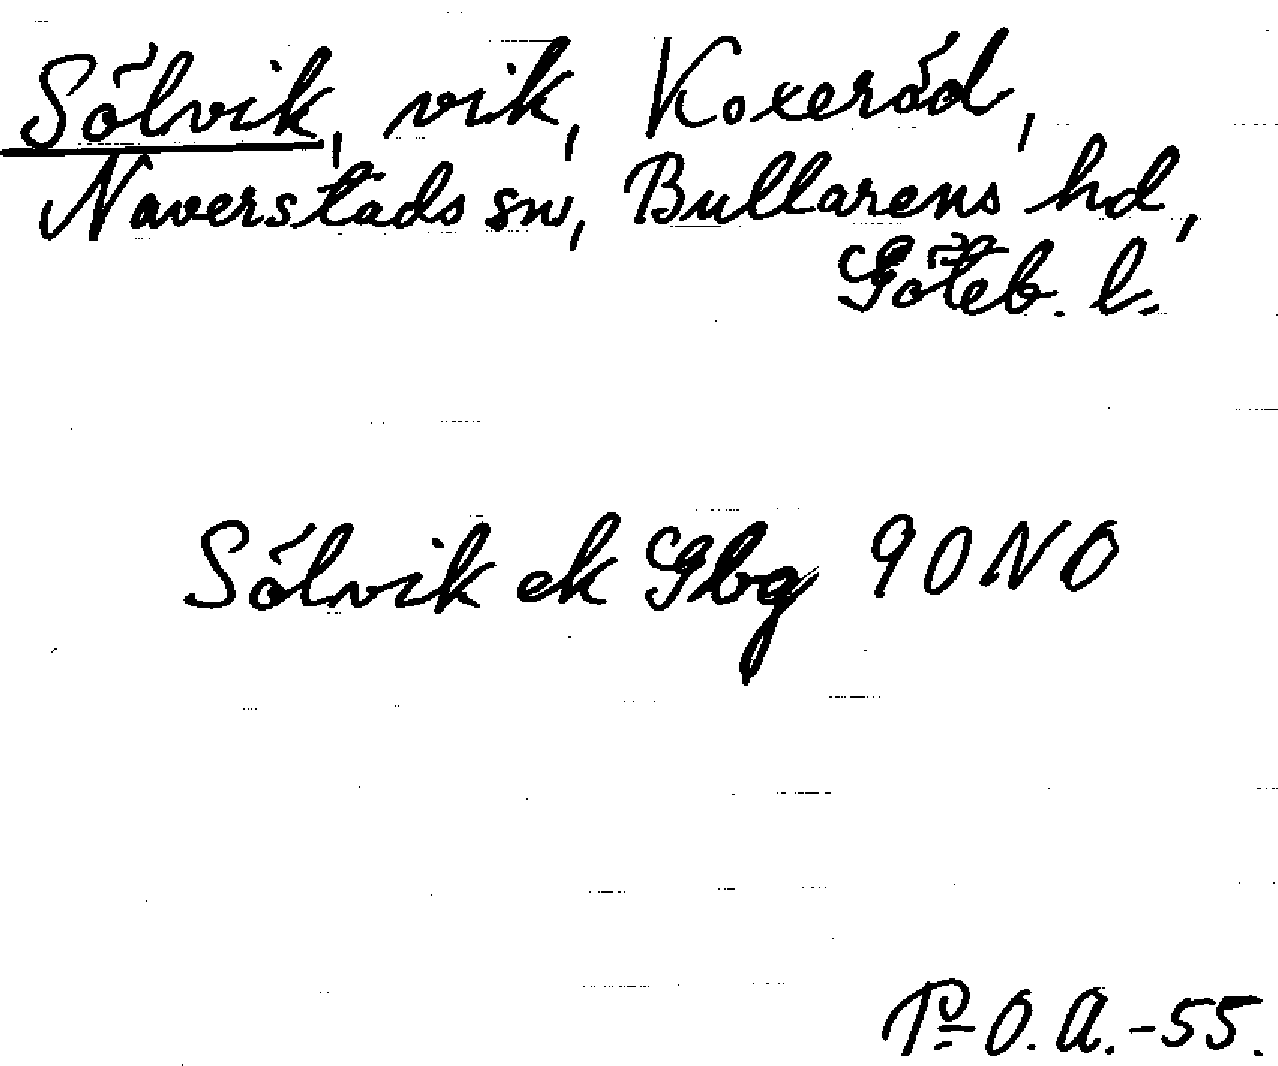 Sölvik, vik, Koxeröd,
Naverstads sn, Bullarens hd,
Göteb. l.
Sölvik ek Gbg 90 NO
P-O.A.-55.